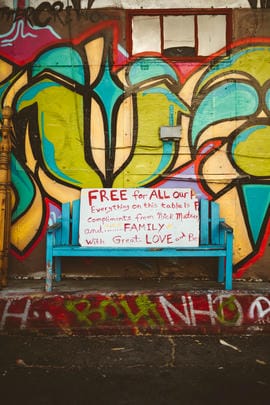 FREE for ALL our P
Everything on this table is F
compliments from Nick
and......FAMILY
with Great LOVE and Be